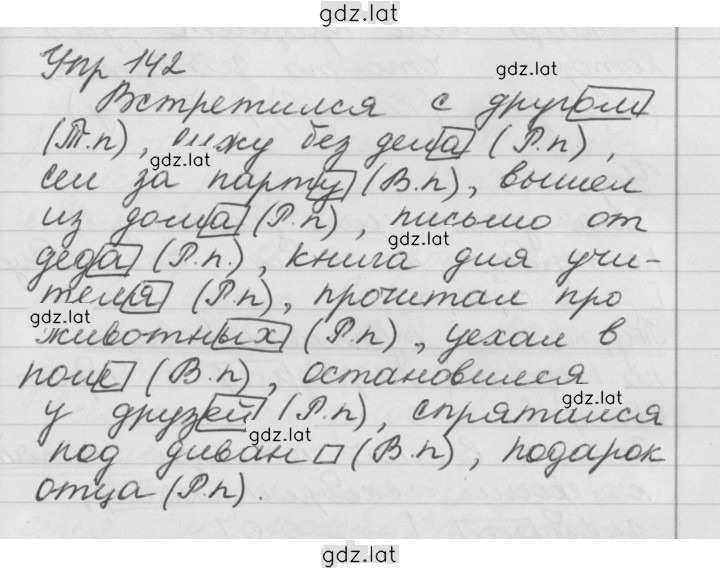 gdz.lat
Упр 142
gdz.lat
Встретился с другом
(Т.п), сижу без дела (Р.п),
gdz.lat
сел за парту (В.п), вышел
из дома (Р.п), письмо от
gdz.lat
деда (Р.п.), книга для учи-
теля (Р.п), прочитал про
gdz.lat
животных (Р.п), уехал в
поле (В.п), остановился
gdz.lat
у друзей (Р.п), спрятался
gdz.lat
под диван (В.п), подарок
отца (Р.п).
gdz.lat